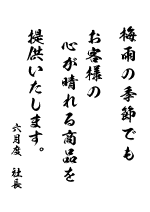 梅雨の季節でも
お客様の
心が晴れる商品を
提供いたします。
六月度 社長